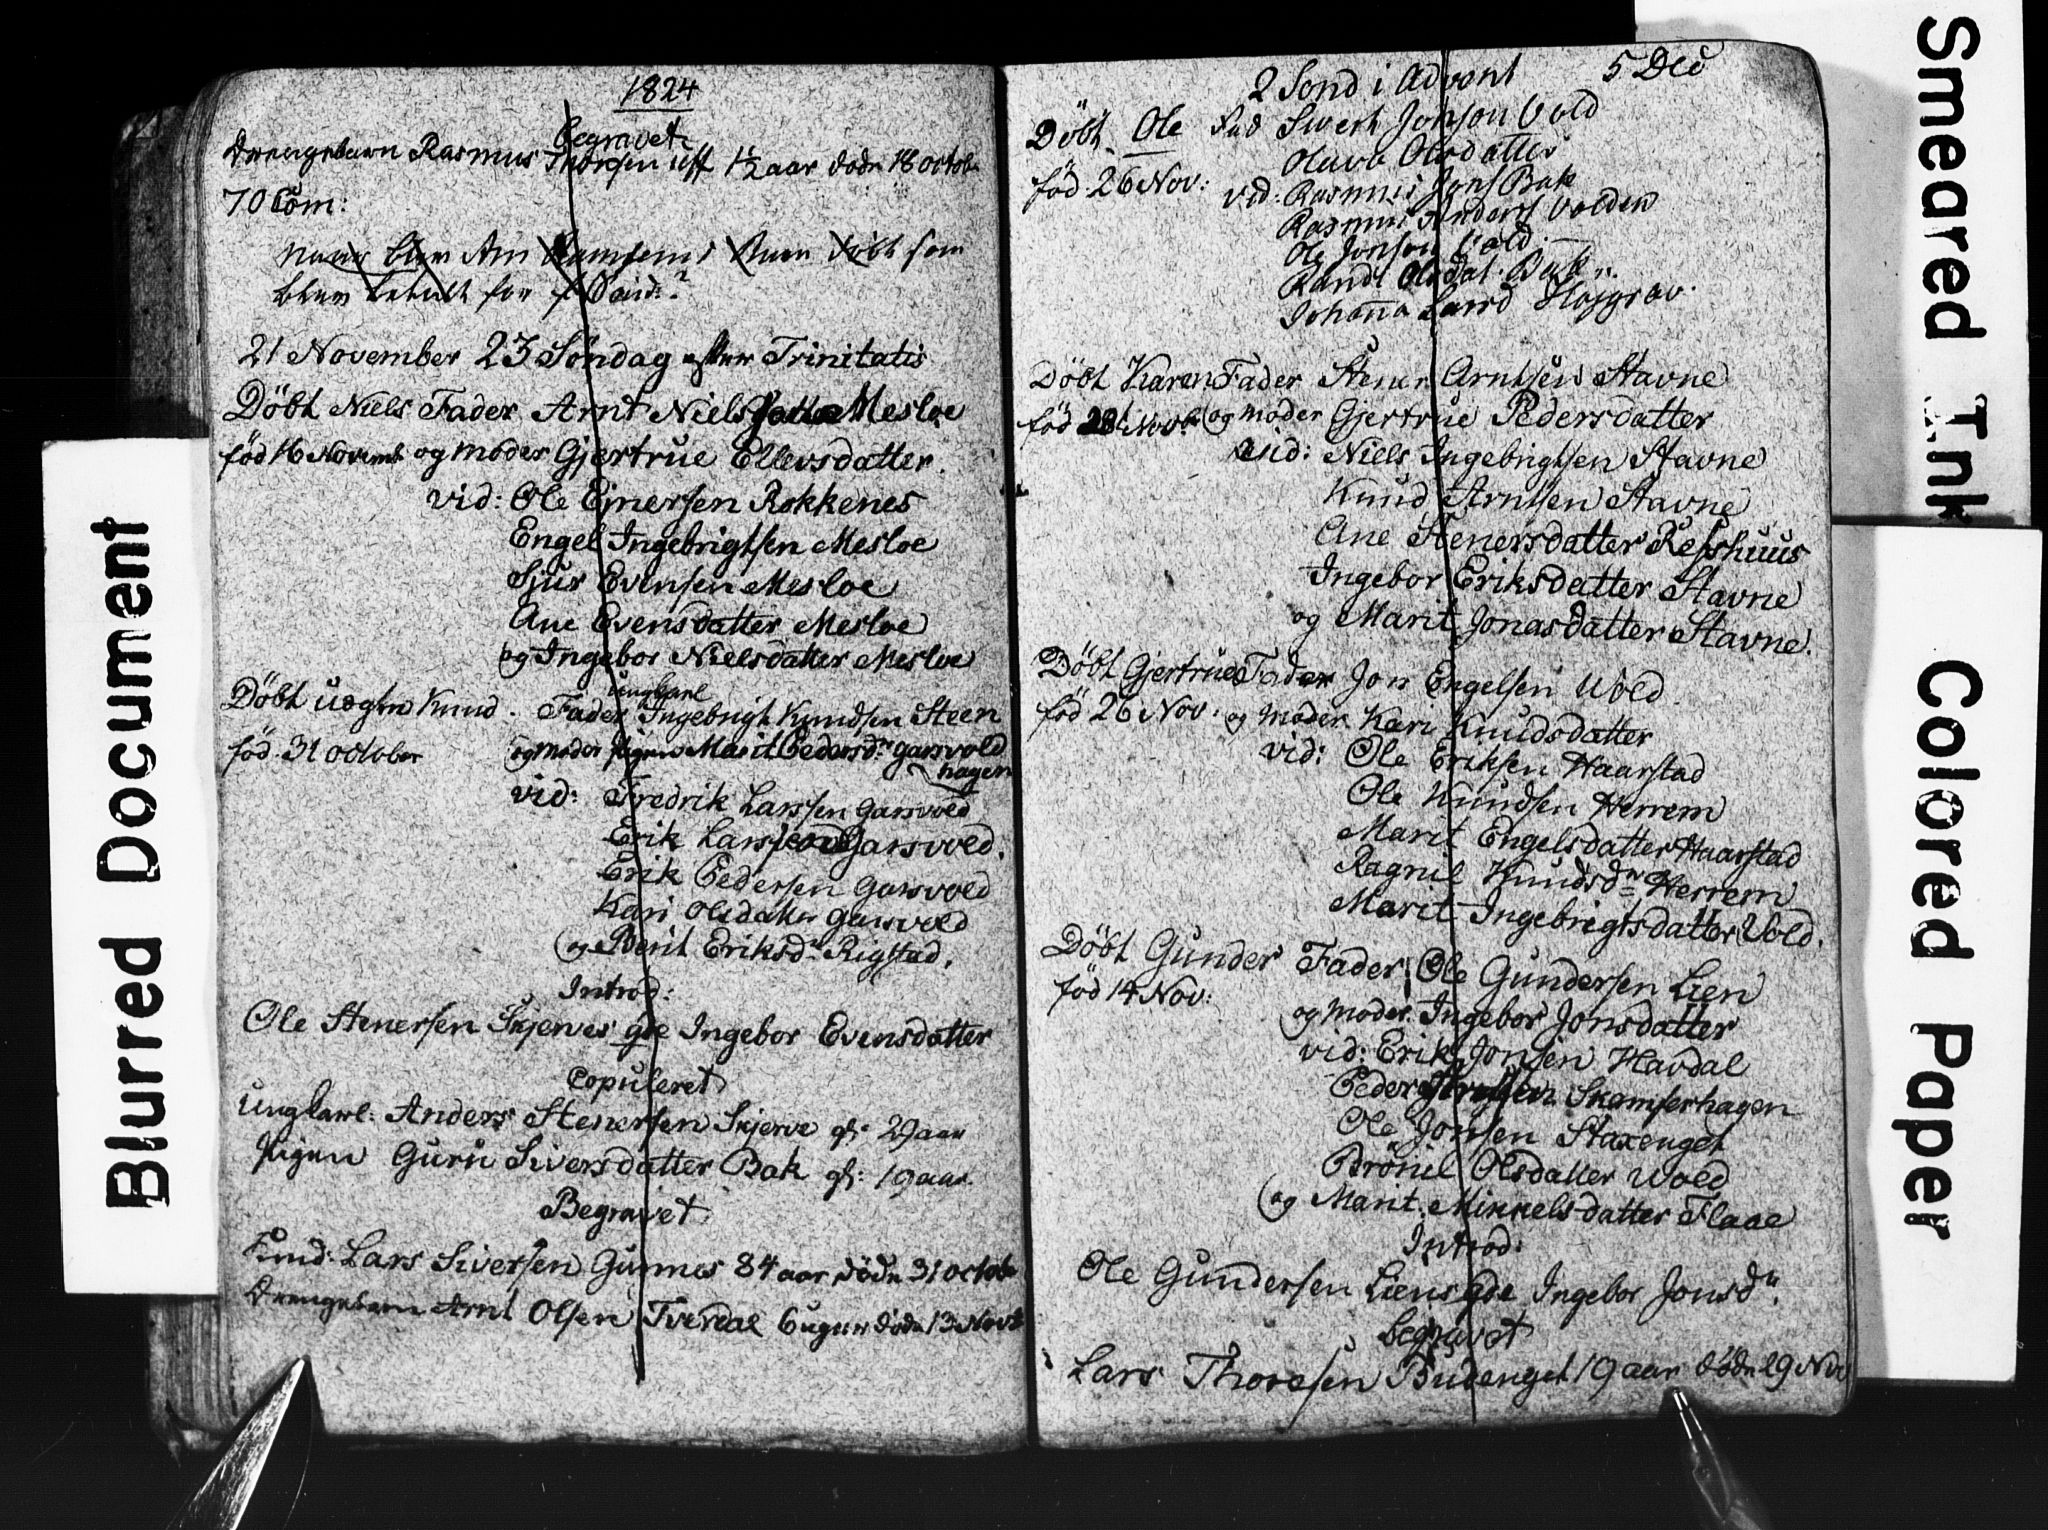 1824
Begravet
Drengebarn Rasmus Thorsen 1½ aar døde 18 octob
70 Com:
som
blev for
21 November 23 Søndag efter Trinitatis
Döbt Niels Fader Arnt Niels Mesloe
föd 16 Novemb og moder Gjertrue Ellevsdatter.
vid: Ole Ejnersen Rokkenes
Engel Ingebrigtsen Mesloe
Sjur Evensen Mesloe
Ane Evensdatter Mesloe
og Ingebor Nielsdatter Mesloe
ungkarl
Döbt uægte Knud. Fader Ingebrigt Knudsen Steen
föd 31 october og moder pigen Marit Pedersdr garsvold
hagen
vid: Fredrik Larssen Garsvold
Erik Larssen Garsvold.
Erik Pedersen Garsvold
Kari Olsdatter Garsvold
og Berit Eriksdr Rigstad.
Introd:
Ole Stenersen Skjerves qde Ingebor Evensdatter
Copuleret
ungkarl: Anders Stenersen Skjerve gl: 29 aar
Pigen Guru Siversdatter Bak gl: 19 aar
Begravet
Lars Siversen Gunnes 84 aar döde 31 octob
Drengebarn Arnt Olsen Tverdal 6 uger döde 13 Novb
2 Sond i Advent 5 Dec
Döbt. Ole Fad Swert Jonson Vold
Olava Olsdatter
föd 26 Nov: vid: Rasmus Jons Bak
Rasmus Anders Volden
Ole Jonson Vold
Randi Olsdat. Bak
Johanna Larsd Hojgrav.
Döbt Karen Fader Stener Arntsen Stavne
föd Novb og moder Gjertrue Pedersdatter
vid: Niels Ingebrigtsen Stavne
Knud Arntsen Stavne
Ane Stenersdatter Resshuus
Ingebor Eriksdatter Stavne
og Marit Jonasdatter Stavne.
Döbt Gjertrue Fader Jon Engelsen Wold
föd 26 Nov: og moder Kari Knudsdatter
vid: Ole Eriksen Haarstad
Ole Knudsen Herrem
Marit Engelsdatter Haarstad
Ragnil Knudsdr Herrem
Marit Ingebrigtsdatter Vold.
Döbt Gunder Fader: Ole Gundersen Lien
föd 14 Nov: og moder Ingebor Jonsdatter
vid: Erik Jonsen Havdal
Peder Skamserhagen
Ole Jonsen Staxenget
Bröniel Olsdatter Wold
og Marit Mikkelsdatter Flaae
Introd:
Ole Gundersen Liens qde Ingebor Jonsdr.
Begravet
Lars Thoresen Budenget 19 aar döde 29 Nov
Blurred Document
Smeared Ink
Colored Paper